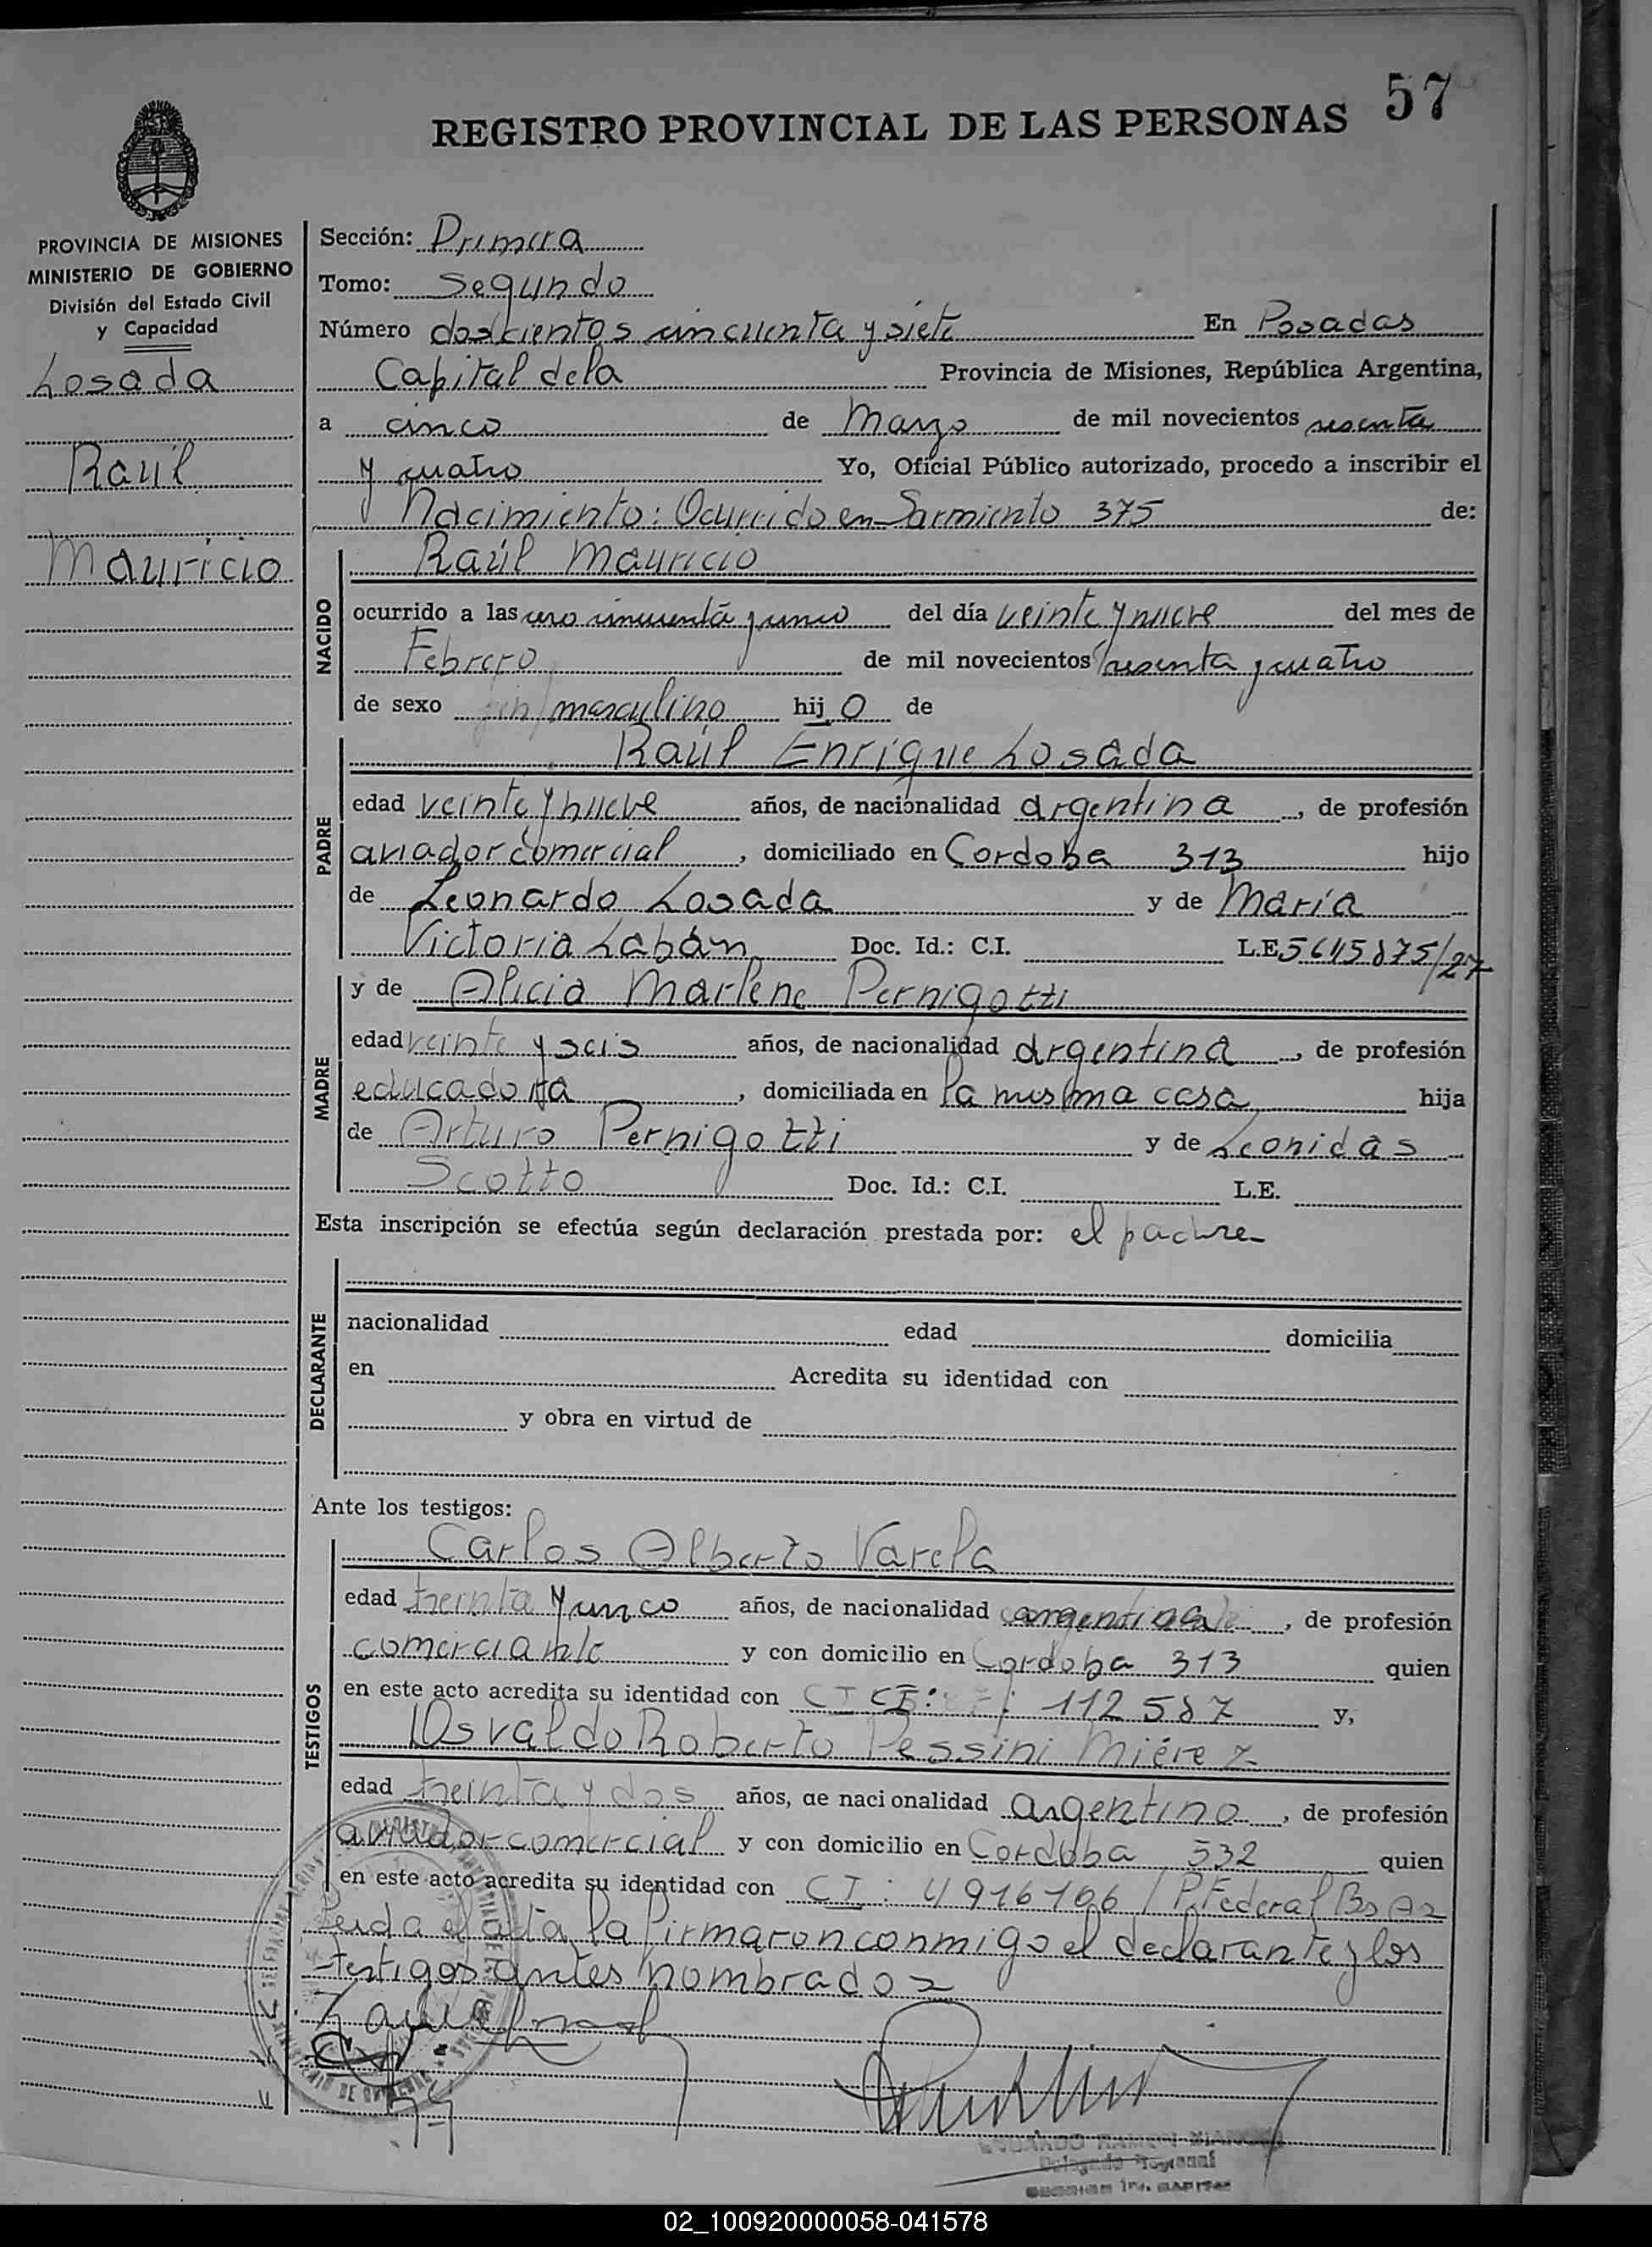 57
REGISTRO PROVINCIAL DE LAS PERSONAS
PROVINCIA DE MISIONES
MINISTERIO DE GOBIERNO
División del Estado Civil
y Capacidad
Losada
Raúl
Mauricio
Sección: Primera
Tomo: Segundo
Número doscientos cincuenta y siete En Posadas
Capital de la Provincia de Misiones, República Argentina,
a cinco de Marzo de mil novecientos sesenta
y cuatro Yo, Oficial Público autorizado, procedo a inscribir el
Nacimiento: Ocurrido en Sarmiento 375 de:
NACIDO
Raúl Mauricio
ocurrido a las cincuenta y cinco del día veinte y nueve del mes de
Febrero de mil novecientos sesenta y cuatro
de sexo masculino hijo de
PADRE
Raúl Enrique Losada
edad veinte y nueve años, de nacionalidad argentina, de profesión
aviador comercial, domiciliado en Cordoba 313 hijo
de Leonardo Losada y de María
Victoria Labán Doc. Id.: C.I. L.E. 5645875/27
MADRE
y de Alicia Marlene Pernigotti
edad veinte y seis años, de nacionalidad argentina, de profesión
educadora, domiciliada en la misma casa hija
de Arturo Pernigotti y de Leonidas
Scotto Doc. Id.: C.I. L.E.
Esta inscripción se efectúa según declaración prestada por: el padre
DECLARANTE
nacionalidad edad domicilia
en Acredita su identidad con
y obra en virtud de
Ante los testigos:
TESTIGOS
Carlos Alberto Varela
edad treinta y cinco años, de nacionalidad argentina, de profesión
comerciante y con domicilio en Cordoba 313 quien
en este acto acredita su identidad con CI: 112587 y,
Osvaldo Roberto Pessini Miérez
edad treinta y dos años, de nacionalidad argentino, de profesión
aviador comercial y con domicilio en Cordoba 532 quien
en este acto acredita su identidad con CI: 4916106 / P. Federal Bs As
Leida el acta, la firmaron conmigo el declarante y los
testigos antes nombrados
Delegado Regional
02_100920000058-041578